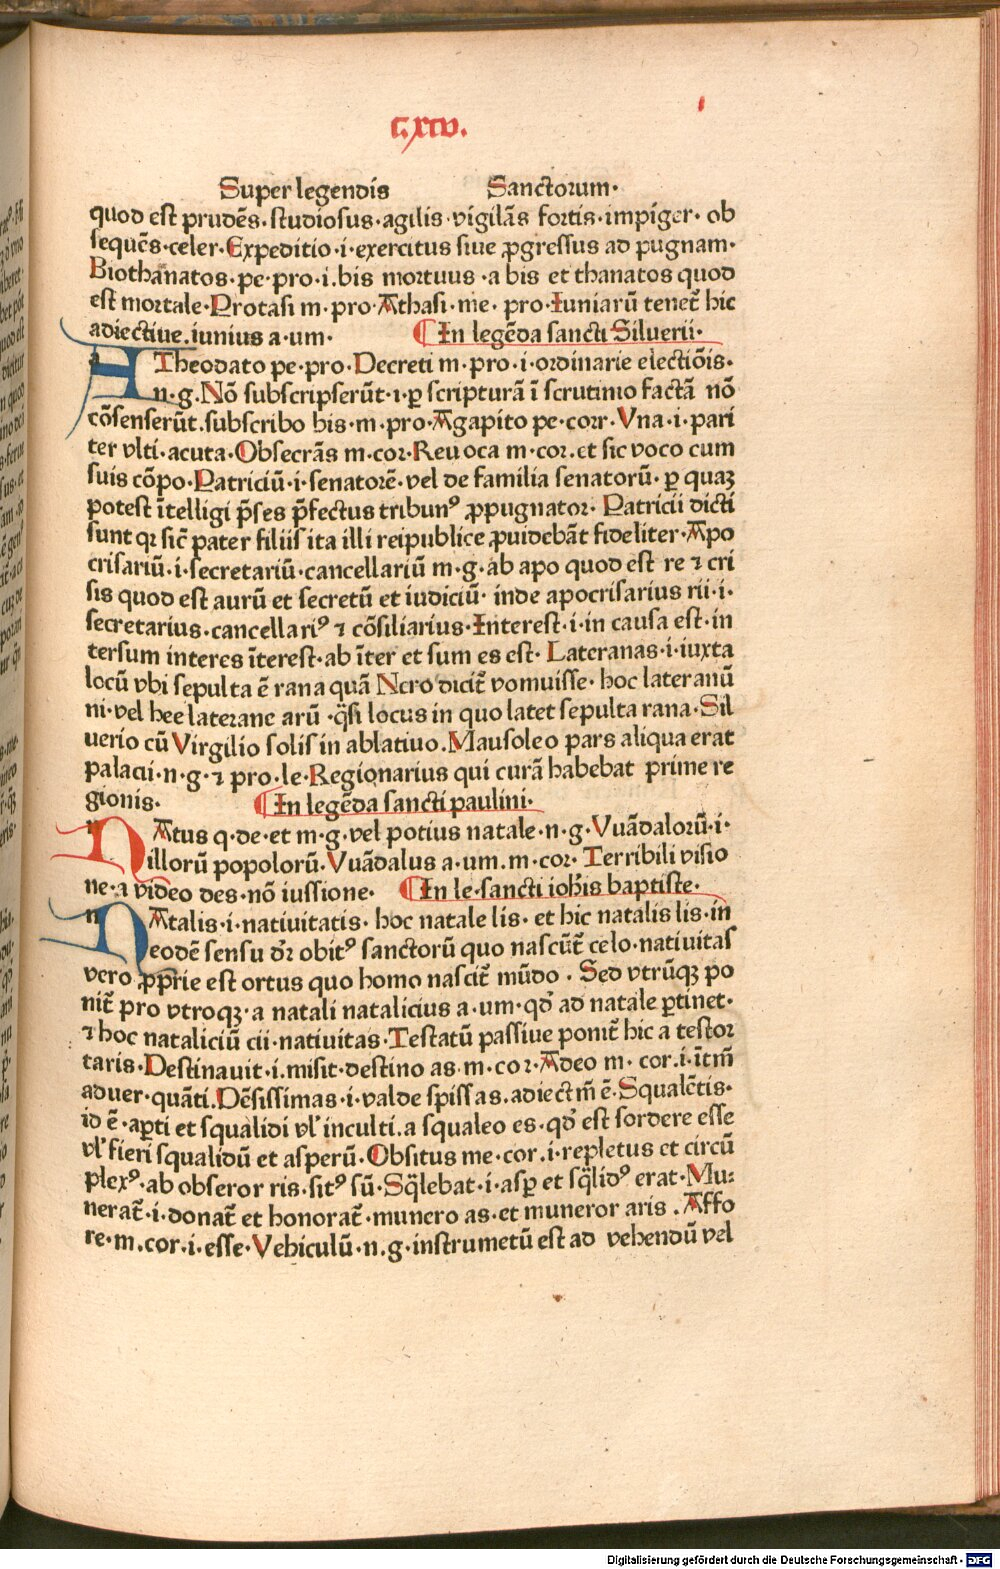 C.xcv.
Super legendis Sanctorum·
quod est prudēs·studiosus·agilis·vigilās fortis·impiger· ob
sequēs·celer·Expeditio·i·exercitus siue ꝓgressus ad pugnam·
Biothanatos·pe·pro·i.bis mortuus ·a bis et thanatos quod
est mortale·Protasi m·pro·Athasi·me· pro·Iuniarū tenet̄ hic
adiectiue.iunius a·um· ¶In legēda sancti Siluerii·
A Theodato pe·pro·Decreti m·pro·i·ordinarie electiōis·
n·g·Nō subscripserūt·i·ꝑ scripturā ī scrutinio factā nō
cōsenserūt.subscribo bis·m·pro·Agapito pe·corr·Vna·i·pari
ter vlti·acuta·Obsecrās m·cor·Reuoca m·cor.et sic voco cum
suis cōpo·Patriciū·i·senatorē·vel de familia senatorū·ꝑ quaꝫ
potest ītelligi p̄ses p̄fectus tribunꝰ ꝓpugnator· Patricii dicti
sunt qꝛ sic̄ pater filiis ita illi reipublice ꝓuidebāt fideliter·Apo
crisariū·i·secretariū·cancellariū m·g·ab apo quod est re ⁊ cri
sis quod est aurū et secretū et iudiciū· inde apocrisarius rii·i·
secretarius·cancellariꝰ ⁊ cōsiliarius·Interest·i·in causa est·in
tersum interes īterest·ab īter et sum es est· Lateranas·i·iuxta
locū vbi sepulta ē rana quā Nero dicit̄ vomuisse· hoc lateranū
ni·vel hee laterane arū ·q̄si locus in quo latet sepulta rana·Sil
uerio cū Virgilio solis in ablatiuo.Mausoleo pars aliqua erat
palacii·n·g·⁊ pro·le·Regionarius qui curā habebat prime re
gionis· ¶In legēda sancti paulini·
NAtus q·de·et m·g·vel potius natale·n·g·Vuādalorū·i·
illorū popolorū·Vuādalus a·um·m·cor· Terribili visio
ne·a video des·nō iussione· ¶In le·sancti ioh̄is baptiste·
NAtalis·i·natiuitatis· hoc natale lis· et hic natalis lis·in
eodē sensu dr̄ obitꝰ sanctorū quo nascūt̄ celo·natiuitas
vero ꝓprie est ortus quo homo nascit̄ mūdo · Sed vtrūqꝫ po
nit̄ pro vtroqꝫ·a natali natalicius a·um·qd̄ ad natale ꝑtinet·
⁊ hoc nataliciū cii·natiuitas·Testatū passiue ponit̄ hic a testor
taris·Destinauit·i·misit·destino as·m·cor·Adeo m· cor·i·īt̄m̄
aduer·quāti·Dēsissimas·i·valde spissas·adiectm̄ ē·Squalētis·
id ē·aꝑti et squalidi vl̓ inculti·a squaleo es·qd̄ est sordere esse
vl̓ fieri squalidū et asperū·Obsitus me·cor.i·repletus et circū
plexꝰ·ab obseror ris·sitꝰ sū·Sq̄lebat·i·asꝑ et sq̄lidꝰ erat·Mu⸗
nerat̄·i·donat̄ et honorat̄·munero as·et muneror aris ·Affo
re·m·cor·i·esse·Vehiculū·n·g·instrumetū est ad vehendū vel
Digitalisierung gefördert durch die Deutsche Forschungsgemeinschaft · DFG